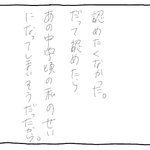 認めたくなかった。
だって認めたら
あの中学頃の私のせい
になってしまいそうだったから。